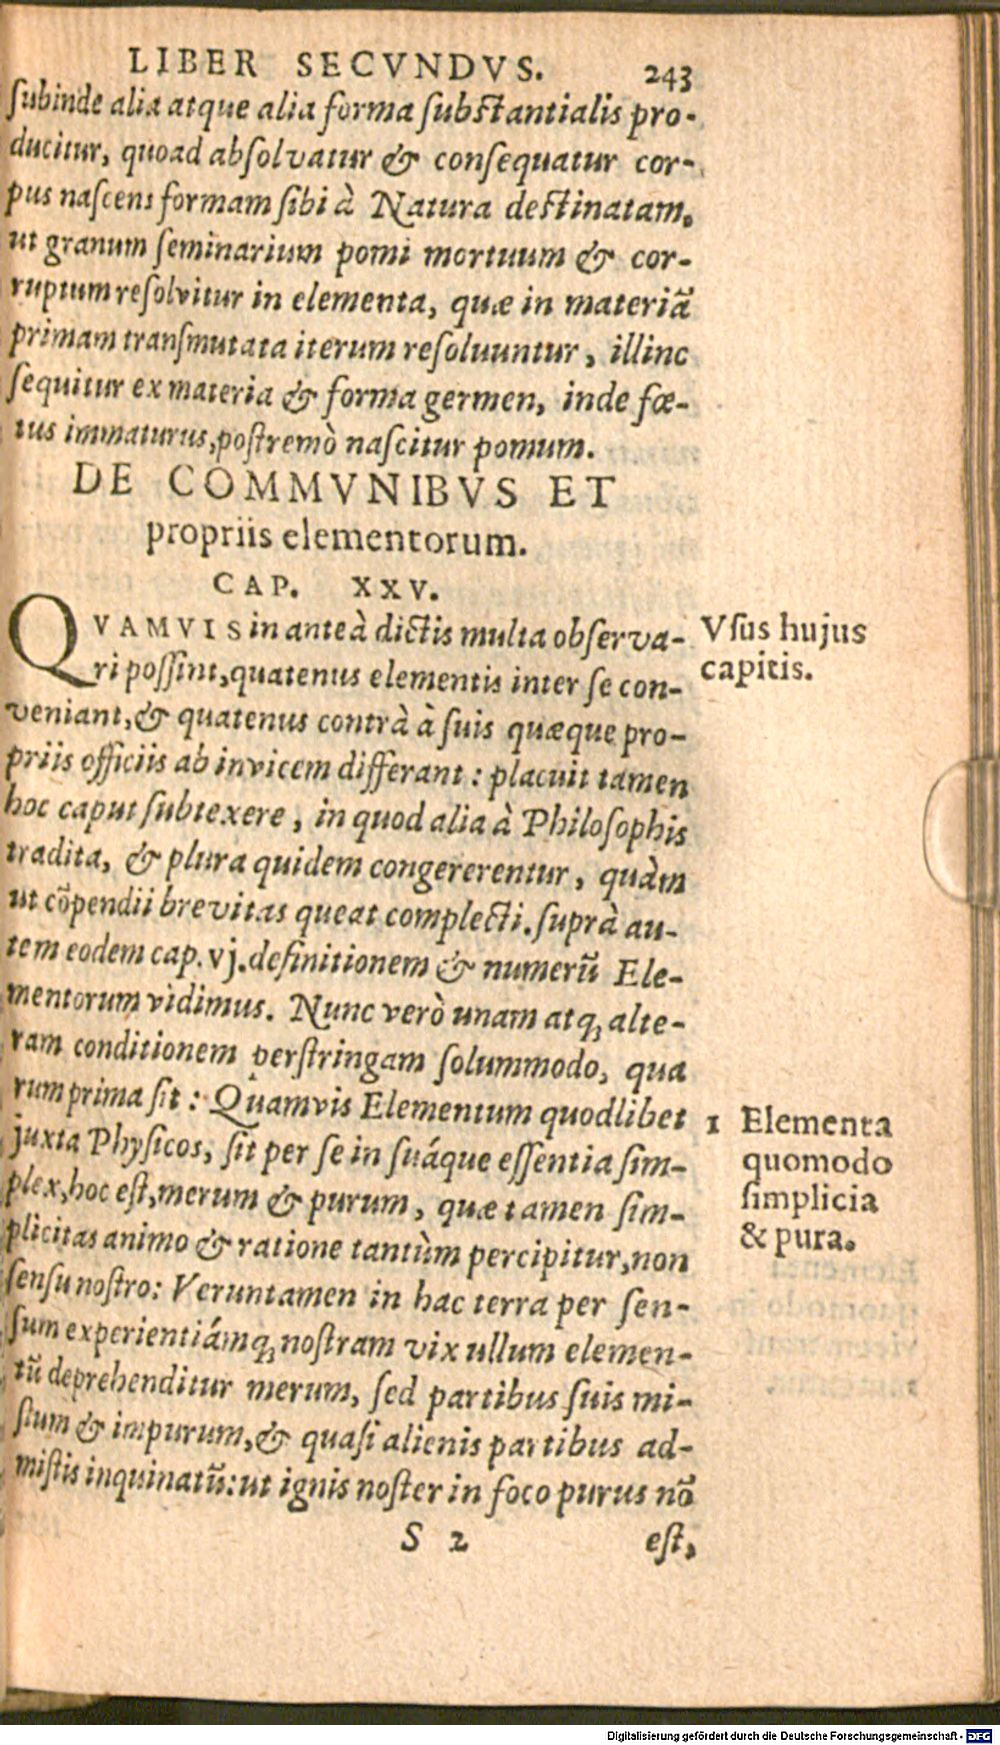 LIBER SECVNDVS. 243
subinde alia atque alia forma substantialis pro-
ducitur, quoad absolvatur & consequatur cor-
pus nascens formam sibi à Natura destinatam.
ut granum seminarium pomi mortuum & cor-
ruptum resolvitur in elementa, quæ in materiã
primam transmutata iterum resoluuntur, illinc
sequitur ex materia & forma germen, inde fœ-
tus immaturus, postremò nascitur pomum.
DE COMMVNIBVS ET
propriis elementorum.
CAP. XXV.
QVAMVIS in anteà dictis multa observa-
ri possint, quatenus elementis inter se con-
veniant, & quatenus contrà à suis quæque pro-
priis officiis ab invicem differant: placuit tamen
hoc caput subtexere, in quod alia à Philosophis
tradita, & plura quidem congererentur, quàm
ut cõpendii brevitas queat complecti. suprà au-
tem eodem cap. vj. definitionem & numerũ Ele-
mentorum vidimus. Nunc verò unam atq; alte-
ram conditionem perstringam solummodo, qua
rum prima sit: Quamvis Elementum quodlibet
juxta Physicos, sit per se in suáque essentia sim-
plex, hoc est, merum & purum, quæ tamen sim-
plicitas animo & ratione tantùm percipitur, non
sensu nostro: Veruntamen in hac terra per sen-
sum experientiámq; nostram vix ullum elemen-
tũ deprehenditur merum, sed partibus suis mi-
stum & impurum, & quasi alienis partibus ad-
mistis inquinatũ: ut ignis noster in foco purus nõ
S 2 est,
Vsus hujus
capitis.
1 Elementa
quomodo
simplicia
& pura.
Digitalisierung gefördert durch die Deutsche Forschungsgemeinschaft - DFG